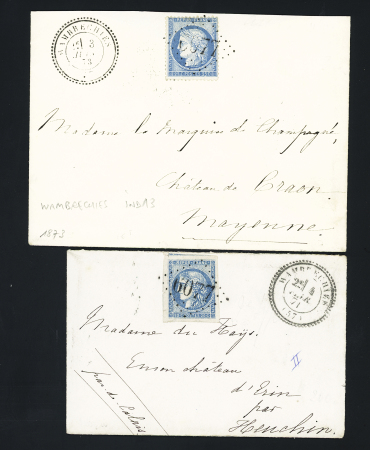 WAMBRECHIES
3
73
Madame la Marquise de Champagné,
Château de Craon
Mayenne
WAMBRECHIES IND 13
1873
6077
WAMBRECHIES
71
Madame du Haÿs
En son château
d'Erin
par
Heuchin
pas de Calais
II